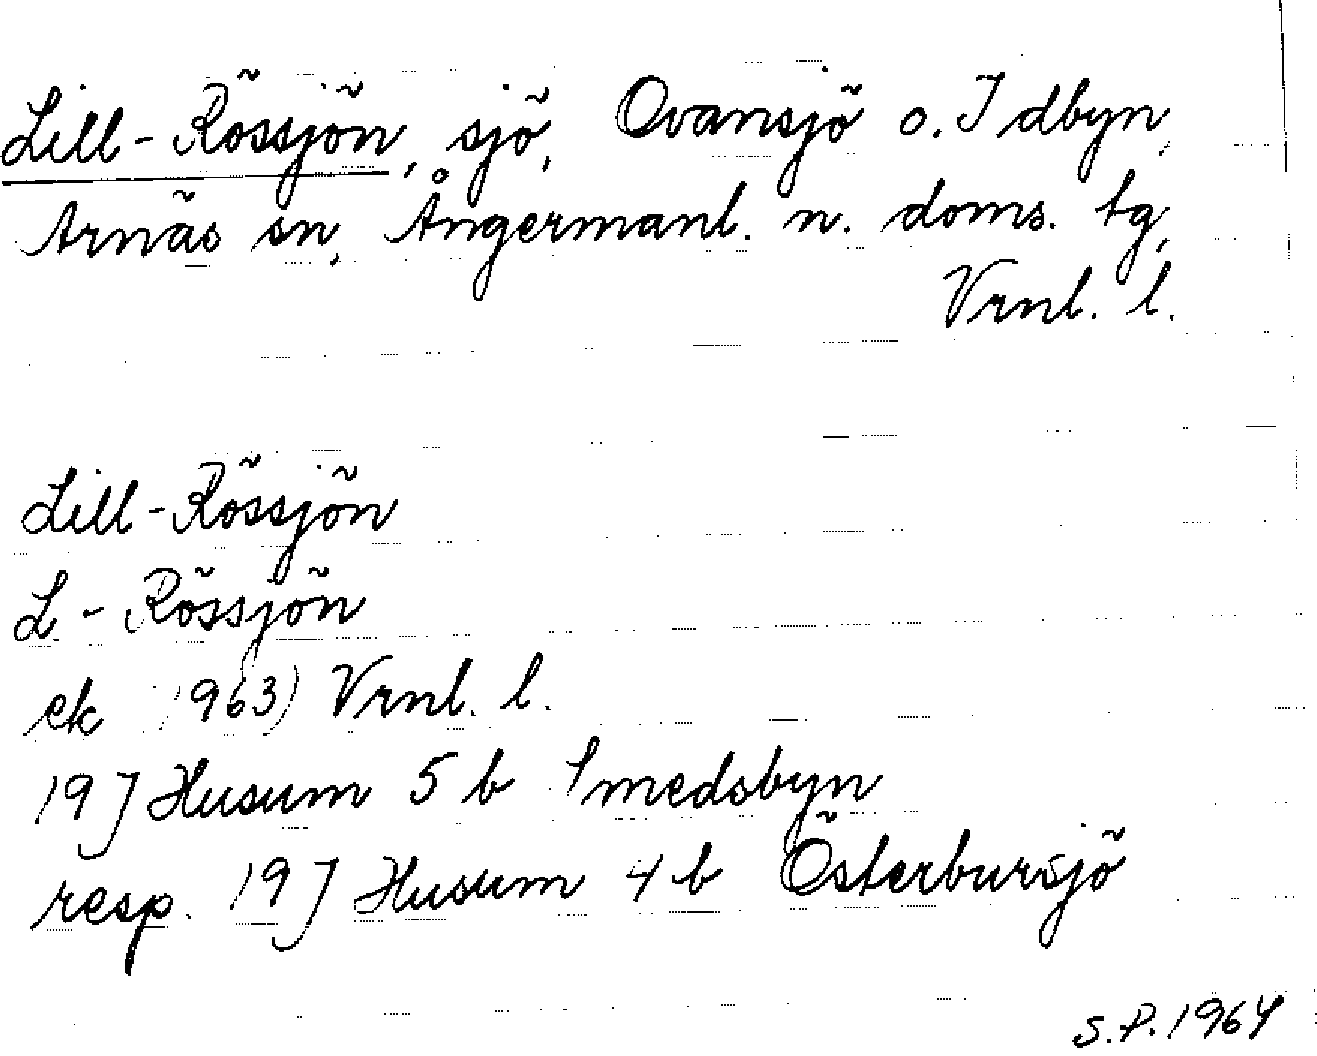 Lill-Rössjön, sjö, Ovansjö o. Idbyn,
Arnäs sn, Ångermanl. n. doms. tg,
Vrnl. l.
Lill-Rössjön
L-Rössjön
ek 1963) Vrnl. l.
19J Husum 5 b Smedsbyn
resp. 19J Husum 4 b Österbursjö
S.P. 1964